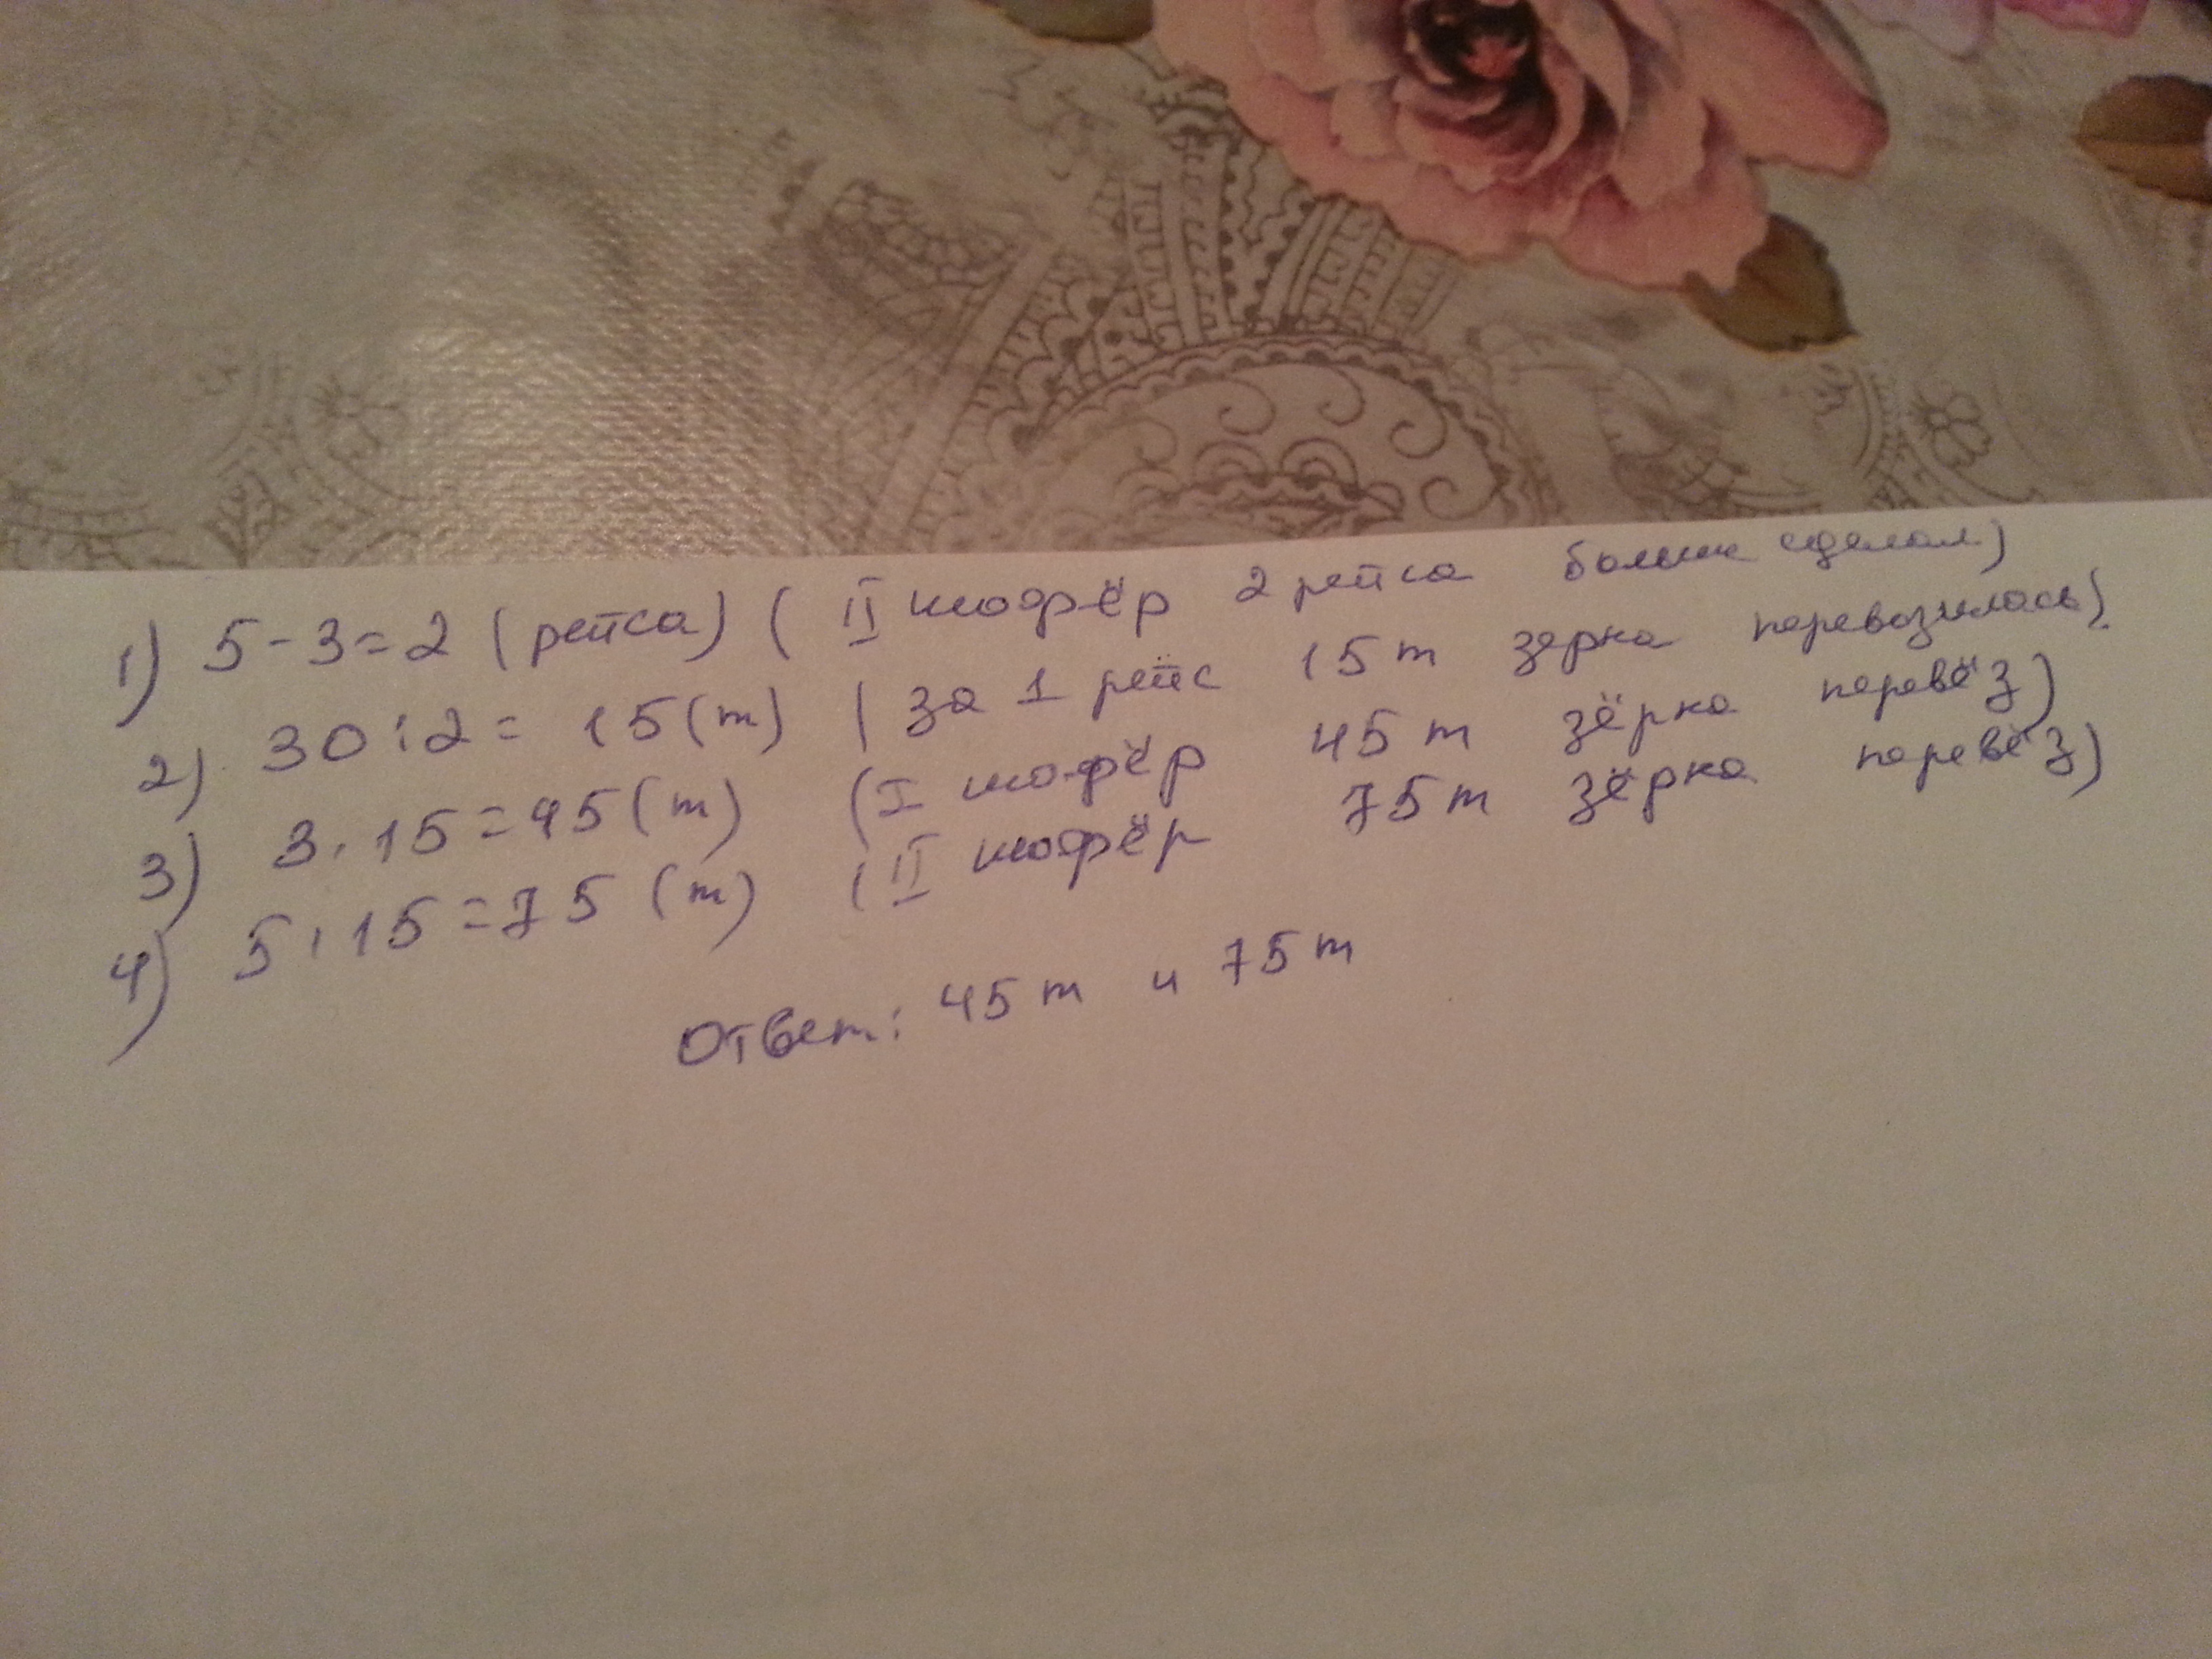 1) 5-3=2 (рейса) ( II шофёр 2 рейса больше сделал)
2) 30:2= 15(т) (за 1 рейс 15т зерна перевозилось)
3) 3·15=45(т) (I шофёр 45т зёрна перевёз)
4) 5·15=75 (т) (II шофёр 75т зёрна перевёз)
Ответ: 45т и 75т